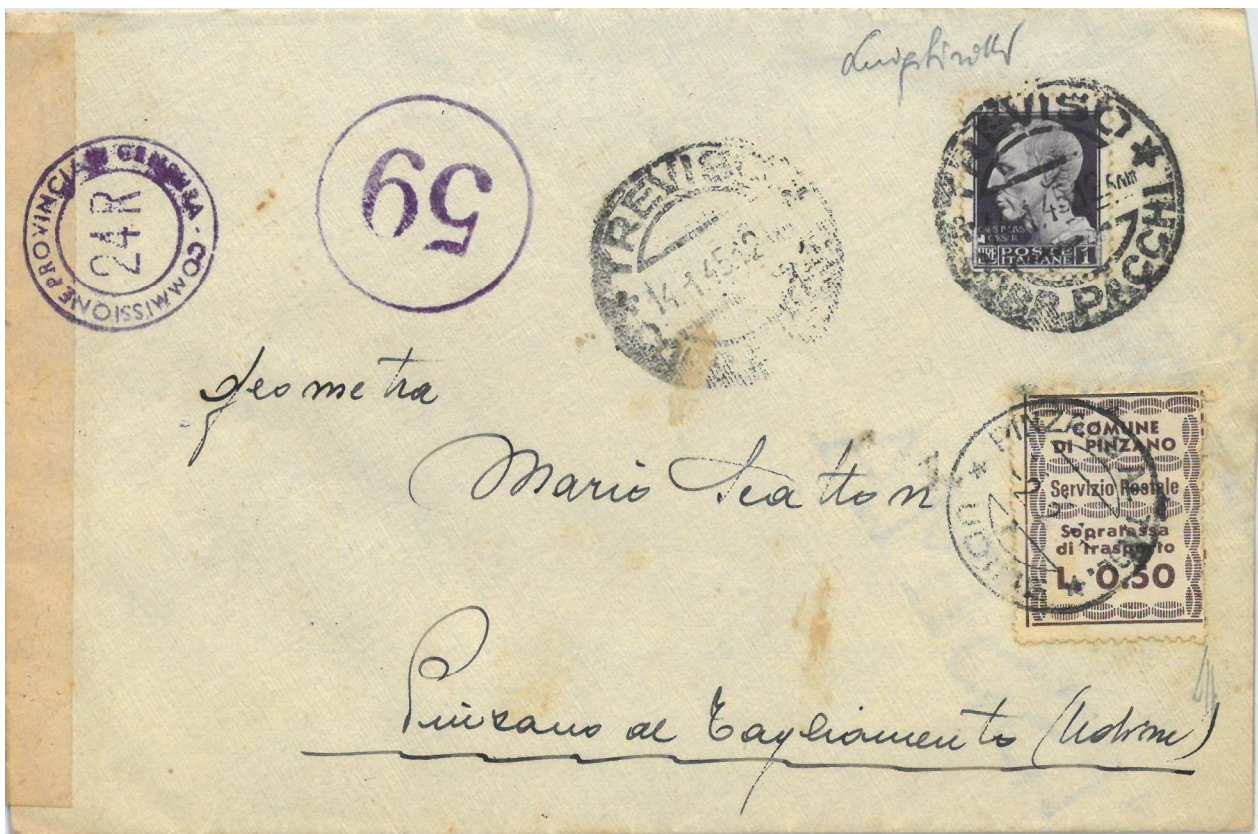 COMMISSIONE PROVINCIALE CENSURA
24R
59
TREVISO
14.1.45
TREVISO
PACCHI
POSTE
ITALIANE
LIRE 1
geometra
Mario Scatton
COMUNE
DI PINZANO
Servizio Postale
Soprafassa
di Trasporto
L. 0.50
PINZANO AL
UDINE
Pinzano al Tagliamento (Udine)